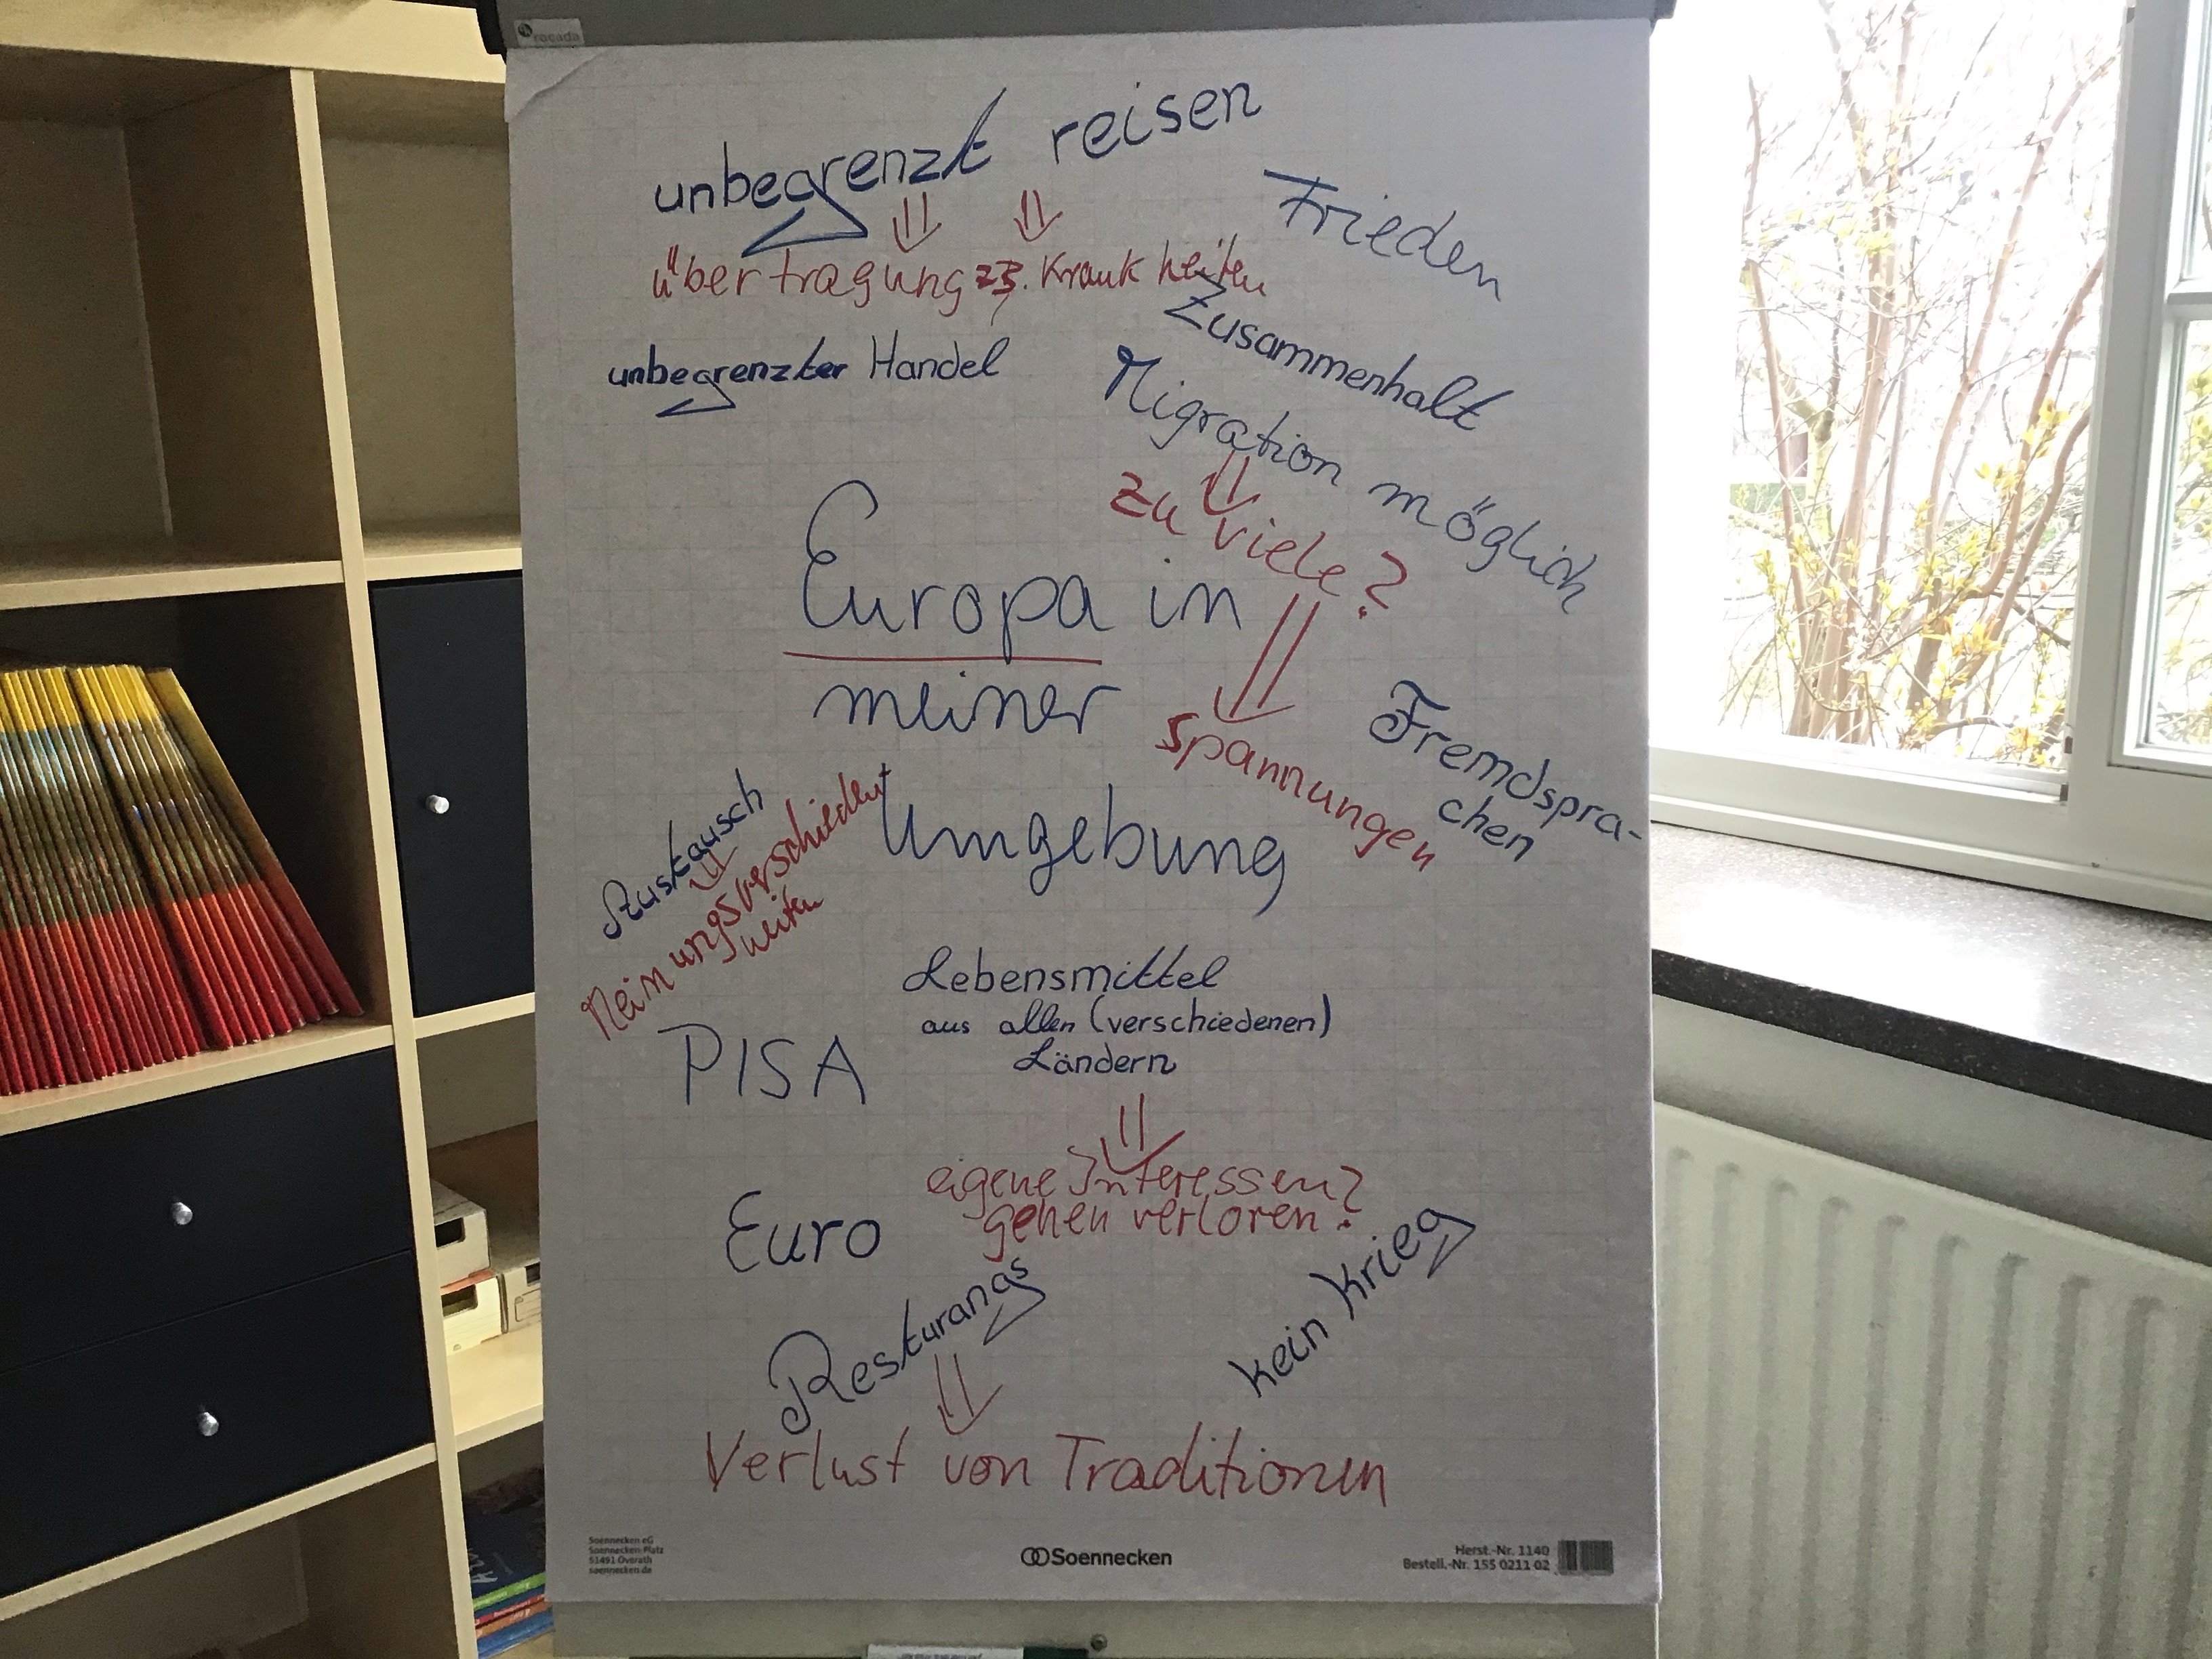 rocada
unbegrenzt reisen
Frieden
übertragung zB. Krankheiten
Zusammenhalt
unbegrenzter Handel
Migration möglich
zu viele?
Europa in
meiner
Umgebung
Spannungen
Fremdspra-
chen
Austausch
Meinungsverschieden
heiten
Lebensmittel
aus allen (verschiedenen)
Ländern
PISA
eigene Interessen
gehen verloren?
Euro
Resturangs
kein Krieg
Verlust von Traditionen
Soennecken eG
Soennecken-Platz
51491 Overath
soennecken.de
Soennecken
Herst.-Nr. 1140
Bestell.-Nr. 155 0211 02